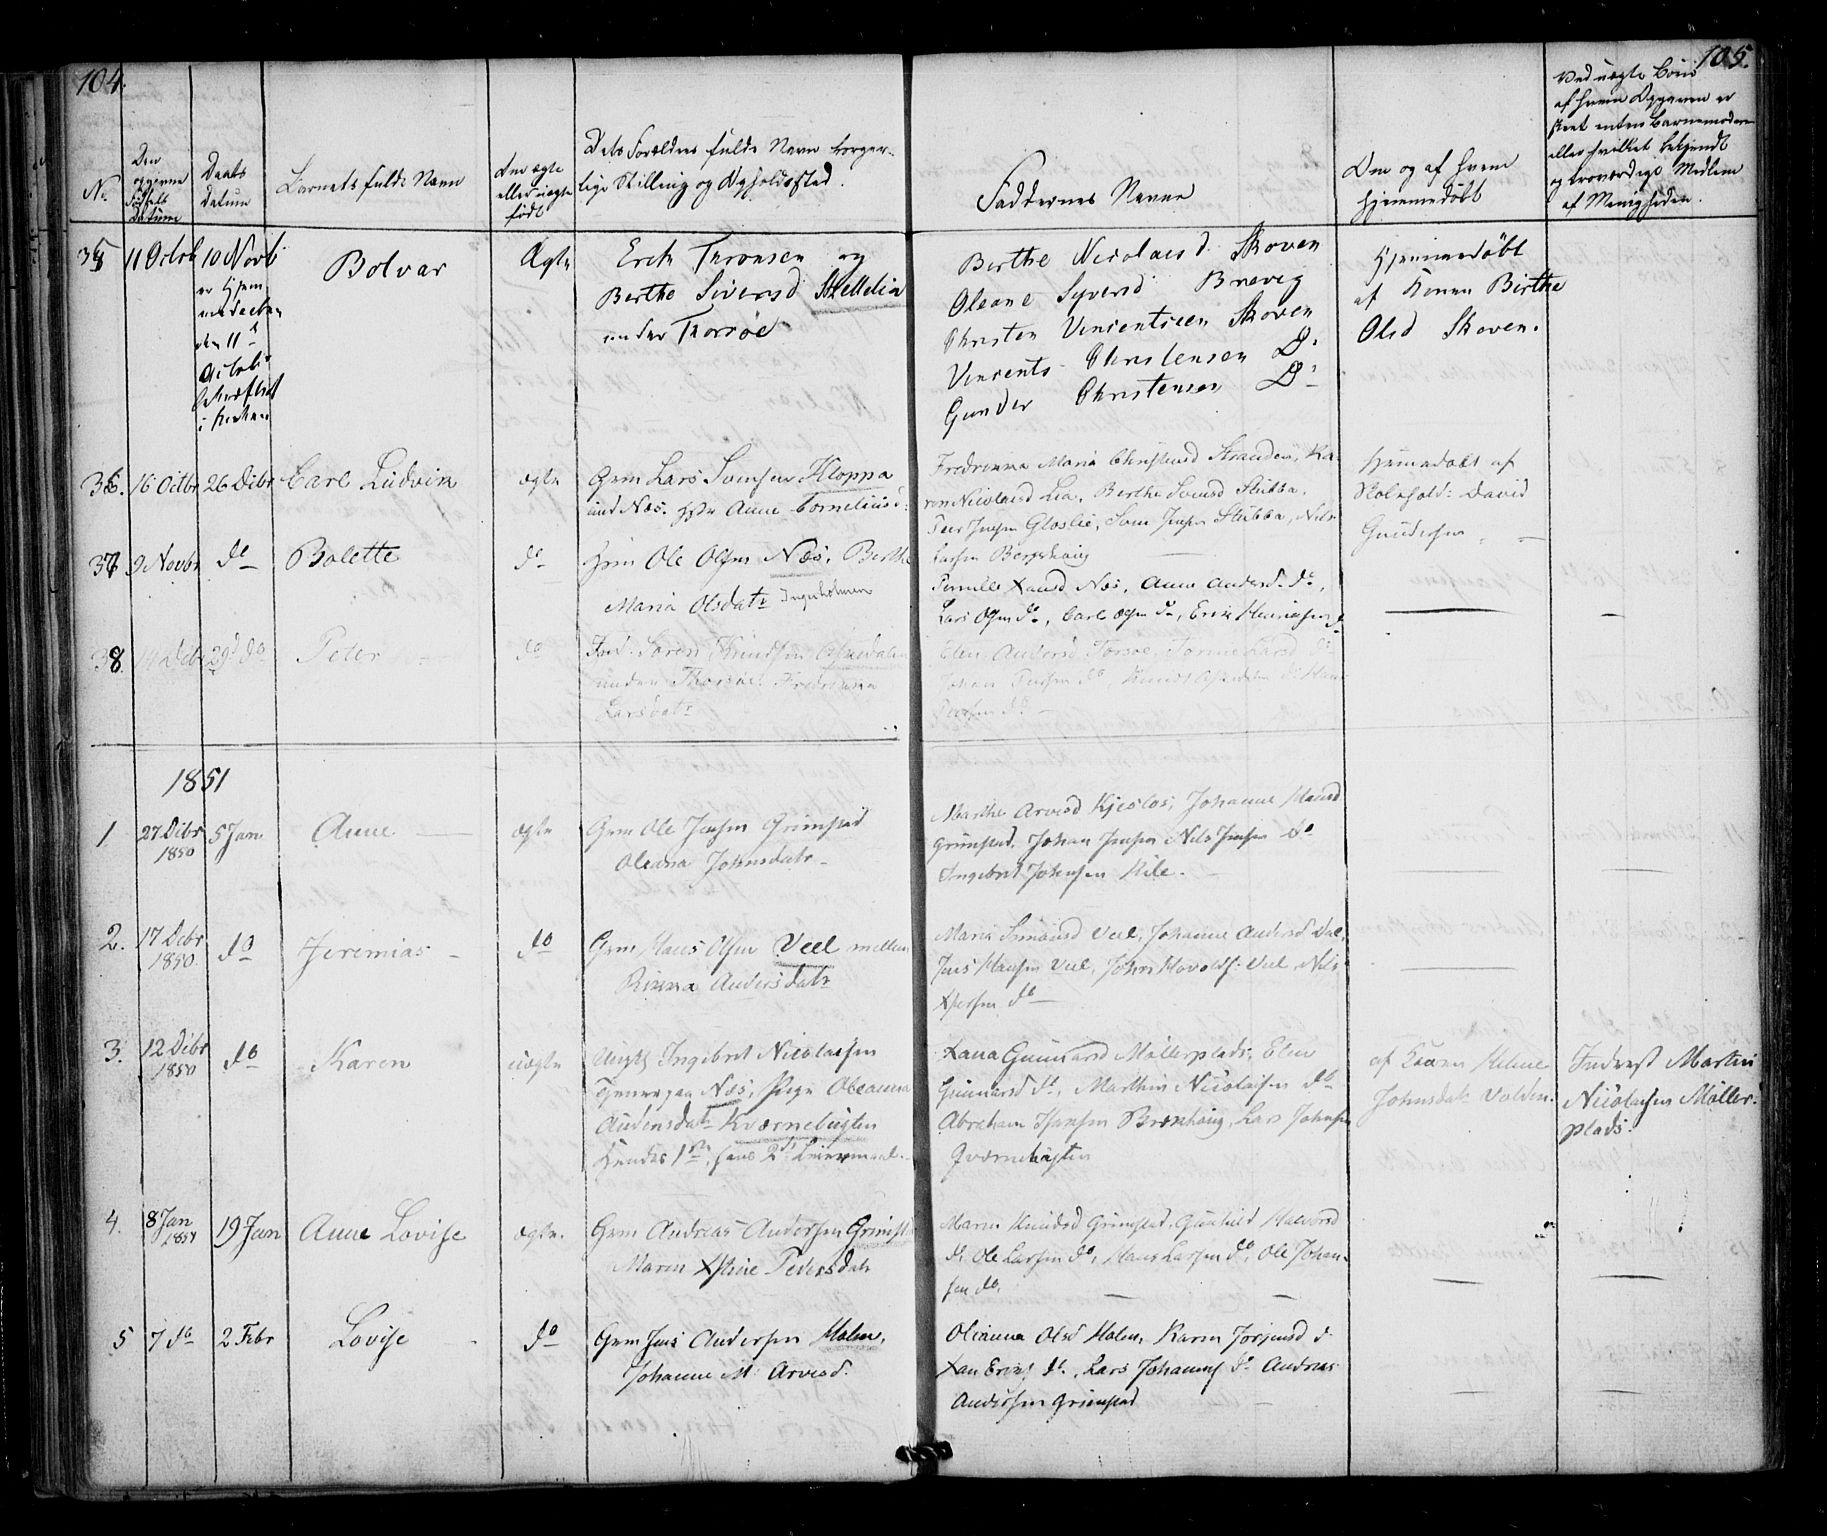 104.
105.
No.
Den
Fødsels
Datum
Daabs
Datum
Barnets fulde Navn
Om ægte
eller uægte
født
Dets Forældres fulde Navn borger-
lige Stilling og Opholdssted.
Faddernes Navne
Om og af hvem
hjemmedøbt
Ved uægte Børn
af hvem Opgaven er
skeet enten Barnemoderen
eller hvilket bekjendt
og troværdigt Medlem
af Menigheden.
35 11 Octob 10 Novb Bolvar Ægte Erik Thronsen og
er hjem
den 11
Octob
i Kirken
Berthe Siversd Skellelia
under Thorsøe
Berthe Nicolaisd Skoven
Oleane Syversd Brevig
Christen Vincentsen Skoven
Vincents Christensen Do
Gunder Christensen Do
Hjemmedøbt
af Konen Birthe
Olsd Skoven.
36. 16 Octbr 26 Dcbr Carl Ludvin ægte Grm Lars Svensen Kloppa
und Næs. Hst Anne Corneliusd:
Fredrikka Maria Christensd Stranden, Ka-
ren Nicolaisd Lia, Berthe Svensd Stubba,
Peer Jensen Gloslie, Sven Jensen Stubba, Nils
Larsen Berghaug
Hjemmedøbt af
Skolehold: David
Gundersen
37 9 Novbr do Bolette do Grm Ole Olsen Næs, Berthe
Maria Olsdatr Ingerholmen
Pernille Xansd Næs, Anne Andersd. do,
Lars Olsen do, Carl Olsen do, Erik Henriksen do
38. 14 Dcbr 29d do Peter do Ind. Søren Knudsen Askedalen
under Thorsøe. Fredrikka
Larsdatr
Elen Andersd Torsøe, Tomine Larsd do
Johan do, Knud do Hans
do
1851
1 27 Dcbr 1850 5 Jan Anne ægte Grm Ole Jensen Grimstad
Oleana Johnsdatr
Marthe Arvesd Kjeslos, Johanne Hansd
Grimstad, Johan Jensen Nils Jensen do
Ingebret Johnsen Kile.
2. 17 Dcbr 1850 do Jeremias do Grm Hans Olsen Veel mellem
Rinna Andersdatr
Maria Simonsd Veel, Johanne Andersd Dal,
Jens Hansen Veel, John Hovolds: Veel, Nils
do
3. 12 Dcbr 1850 do Karen uægte Ungk Ingebret Nicolaisen
Tjener paa Næs, Pige Oleanna
Audensdatr Kværnebugten
Hendes 1ste, hans 2det Leiermaal.
Xana Gunnarsd Møllerplads, Elen
Gunnarsd do, Marthin Nicolaisen do
Abraham Hansen Brønhaug, Lars Johnsen
Qværnebugten
af Konen Helene
Johnsdatr Volden.
Inderst Martin
Nicolaisen Møller-
plads.
4. 8 Jan 1851 19 Jan Anne Lovise ægte. Grm Andreas Andersen Grimstad
Maren Xstine Pedersdatr
Maren Knudsd Grimstad, Gunhild Halvorsd
do Ole Larsen do, Hans Larsen do, Ole Johan-
sen do,
5 7 do 2 Febr Lovise do Grm Jens Andersen Holm,
Johanne M. Arvesd.
Olianna Olsd Holm, Karen Jorgensd do
Xan Erics do, Lars Johanns do Andreas
Andersen Grimstad